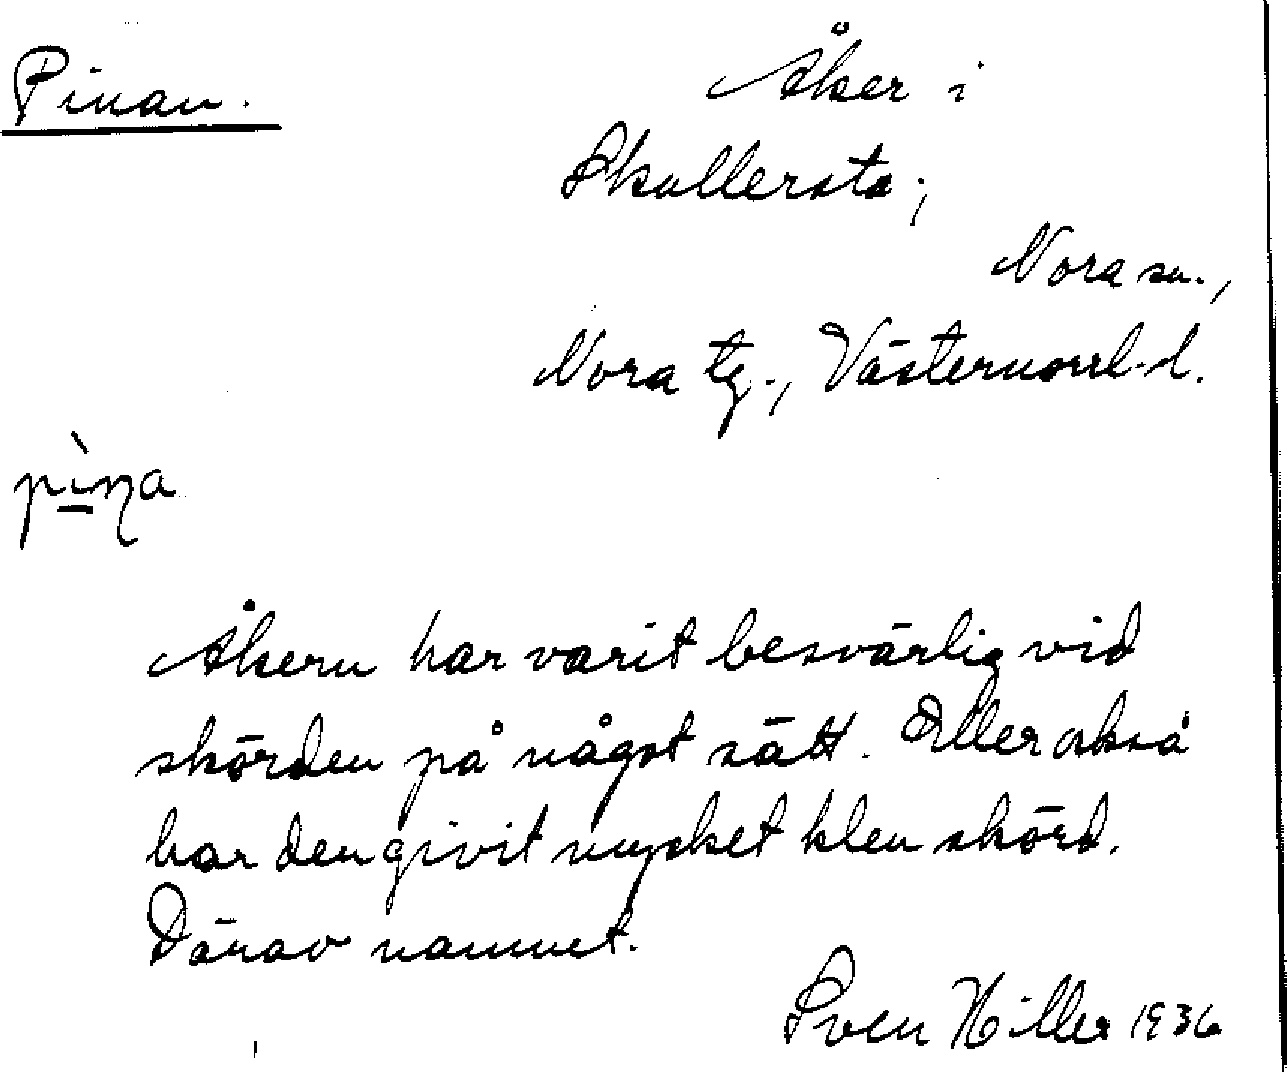 Pinan.
Åker i
Skullersta;
Nora sn.,
Nora tg., Västernorrl. l.
pìna
Åkern har varit besvärlig vid
skörden på något sätt. Eller också
har den givit mycket klen skörd.
Därav namnet.
Sven Hiller 1936